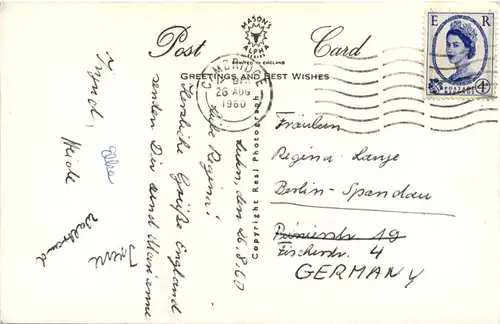 MASON'S
ALPHA
SERIES
Post Card
PRINTED IN ENGLAND
GREETINGS AND BEST WISHES
CAMBRIDGE
26 AUG
1960
E R
4D
POSTAGE
REVENUE
Copyright Real Photograph
den 26.8.60
Liebe Regina!
Herzliche Grüße England
senden Dir und Marianne
Irene
Waltraud
Heide
Elke
Fräulein
Regina Lange
Berlin-Spandau
19
Fischerstr. 4
GERMANY